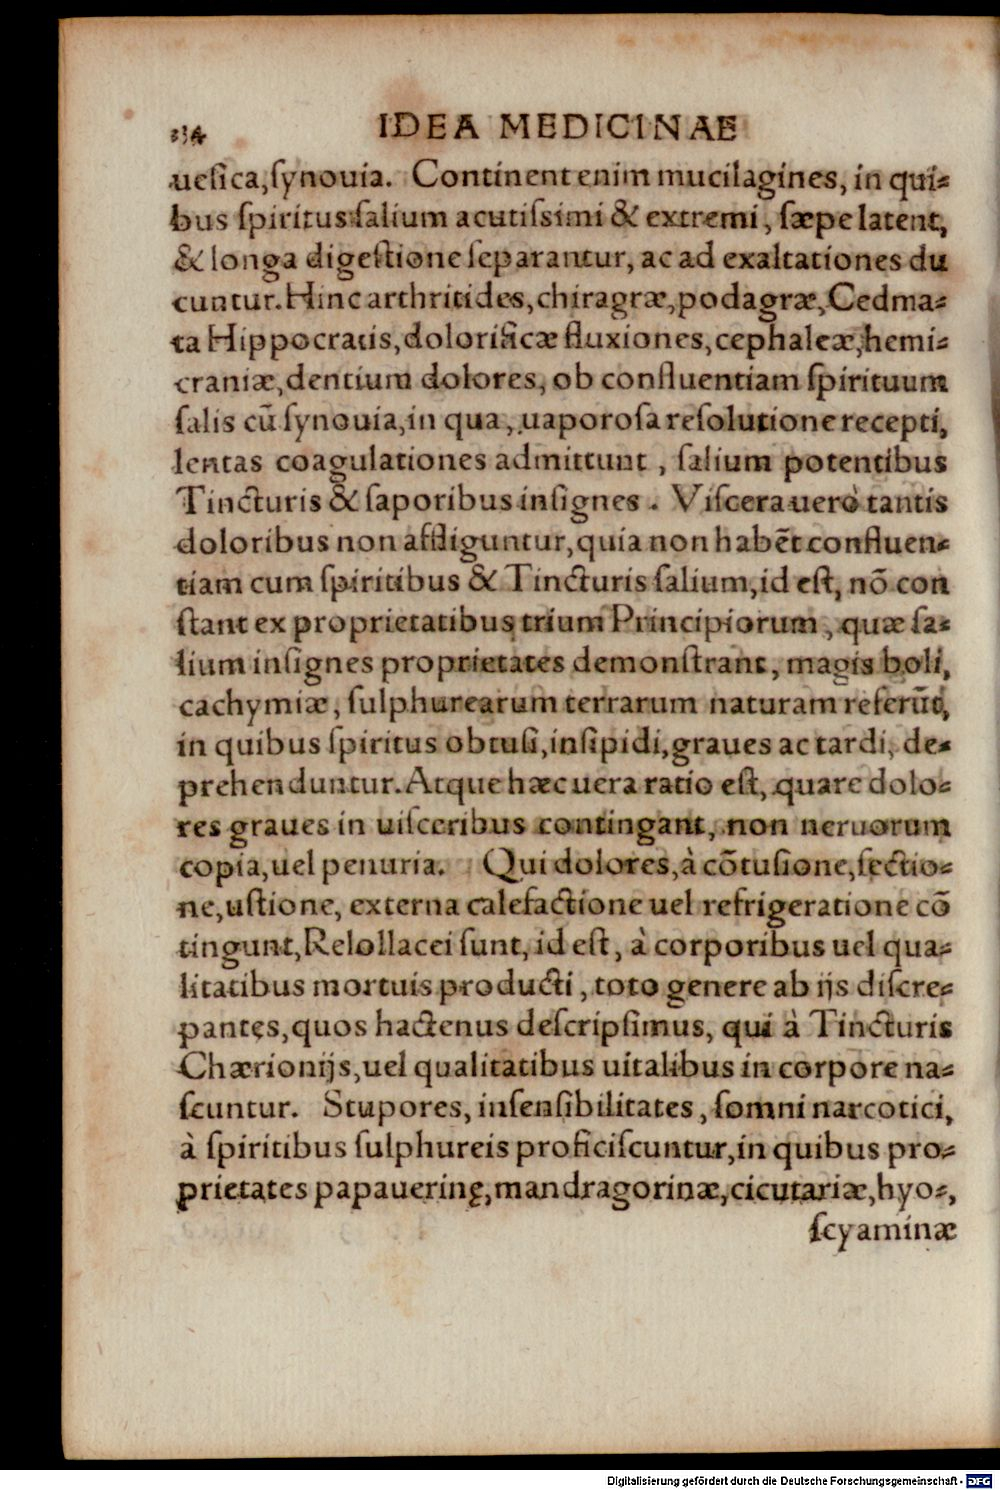 234 IDEA MEDICINAE
uesica, synouia. Continent enim mucilagines, in qui-
bus spiritus salium acutissimi & extremi, sæpe latent,
& longa digestione separantur, ac ad exaltationes du
cuntur. Hinc arthritides, chiragræ, podagræ, Cedma-
ta Hippocratis, dolorificæ fluxiones, cephaleæ, hemi-
craniæ, dentium dolores, ob confluentiam spirituum
salis cũ synouia, in qua, uaporosa resolutione recepti,
lentas coagulationes admittunt, salium potentibus
Tincturis & saporibus insignes. Viscera uerò tantis
doloribus non affliguntur, quia non habẽt confluen-
tiam cum spiritibus & Tincturis salium, id est, nõ con
stant ex proprietatibus trium Principiorum, quæ sa-
lium insignes proprietates demonstrant, magis boli,
cachymiæ, sulphurearum terrarum naturam referũt,
in quibus spiritus obtusi, insipidi, graues ac tardi, de-
prehenduntur. Atque hæc uera ratio est, quare dolo-
res graues in uisceribus contingant, non neruorum
copia, uel penuria. Qui dolores, à cõtusione, sectio-
ne, ustione, externa calefactione uel refrigeratione cõ
tingunt, Relollacei sunt, id est, à corporibus uel qua-
litatibus mortuis producti, toto genere ab ijs discre-
pantes, quos hactenus descripsimus, qui à Tincturis
Chærionijs, uel qualitatibus uitalibus in corpore na-
scuntur. Stupores, insensibilitates, somni narcotici,
à spiritibus sulphureis proficiscuntur, in quibus pro-
prietates papauerinę, mandragorinæ, cicutariæ, hyo-,
scyaminæ
Digitalisierung gefördert durch die Deutsche Forschungsgemeinschaft - DFG